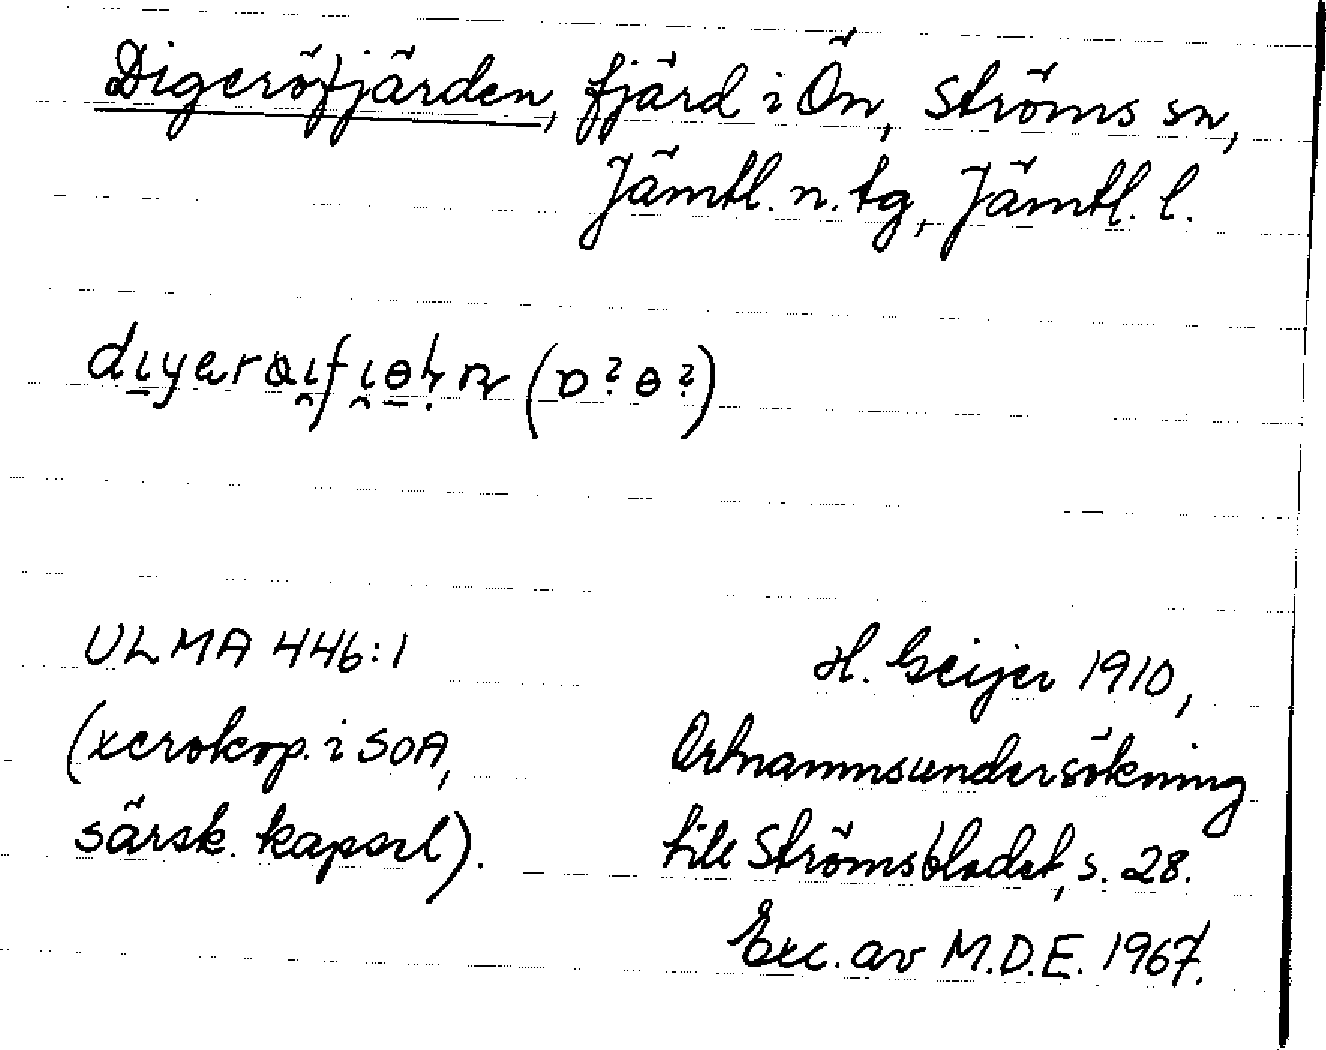 Digeröfjärden, fjärd i Ön, Ströms sn,
Jämtl. n. tg, Jämtl. l.
ULMA 446:1
H. Geijer 1910,
(xerokop. i SOA,
Ortnamnsundersökning
särsk. kapsel).
till Strömsbladet, s. 28.
Exc. av M.D.E. 1967.